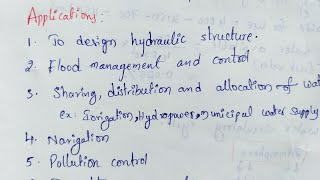 Applications:
1. To design hydraulic structure.
2. Flood management and control
3. Sharing, distribution and allocation of wa
ex: Irrigation, Hydropower, municipal water supply
4. Navigation
5. Pollution control